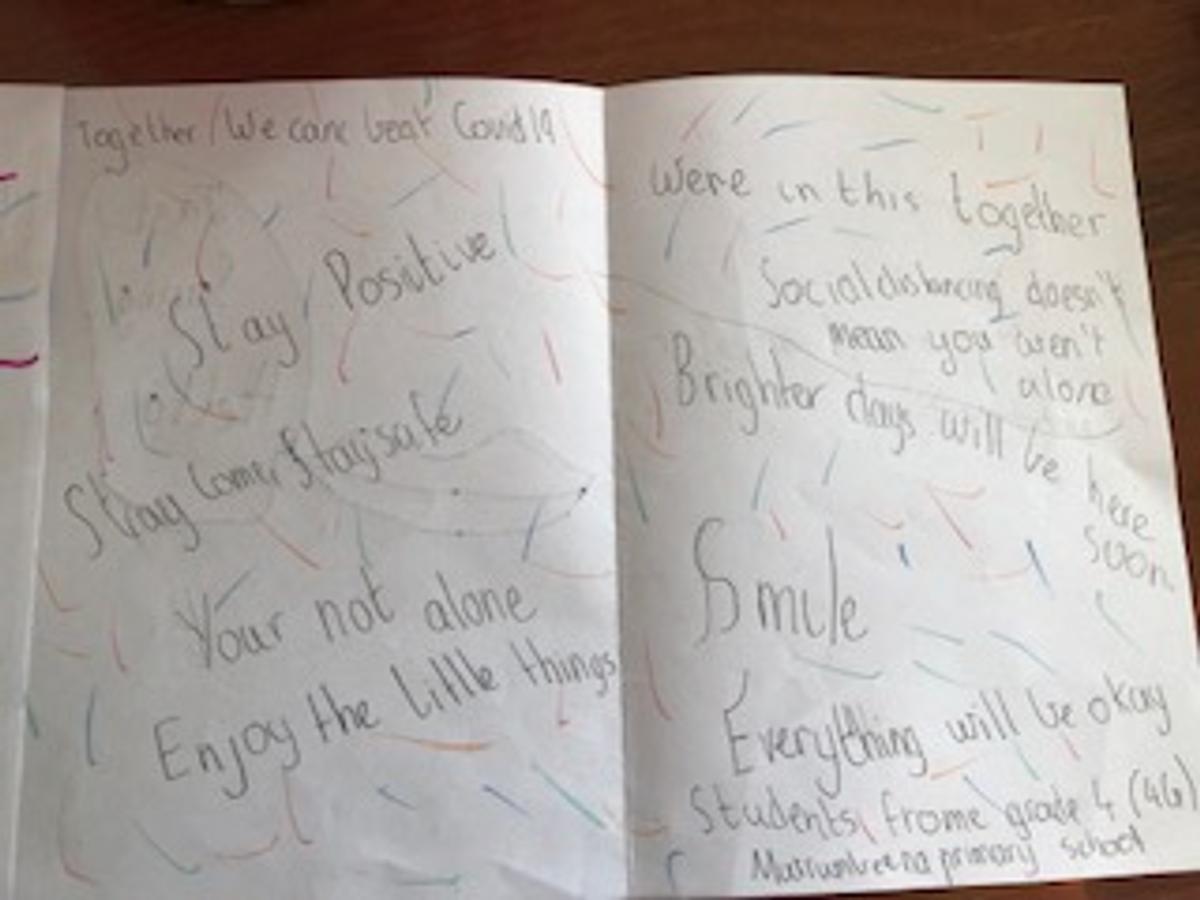 Together We cane beat Covid 19
Stay Positive
Stay Stay safe
Your not alone
Enjoy the little things
Were in this together
Social distancing doesn't
mean you aren't
alone
Brighter days will be here
soon
Smile
Everything will be okay
Students frome grade 4 (4G)
Murrumbeena primary school